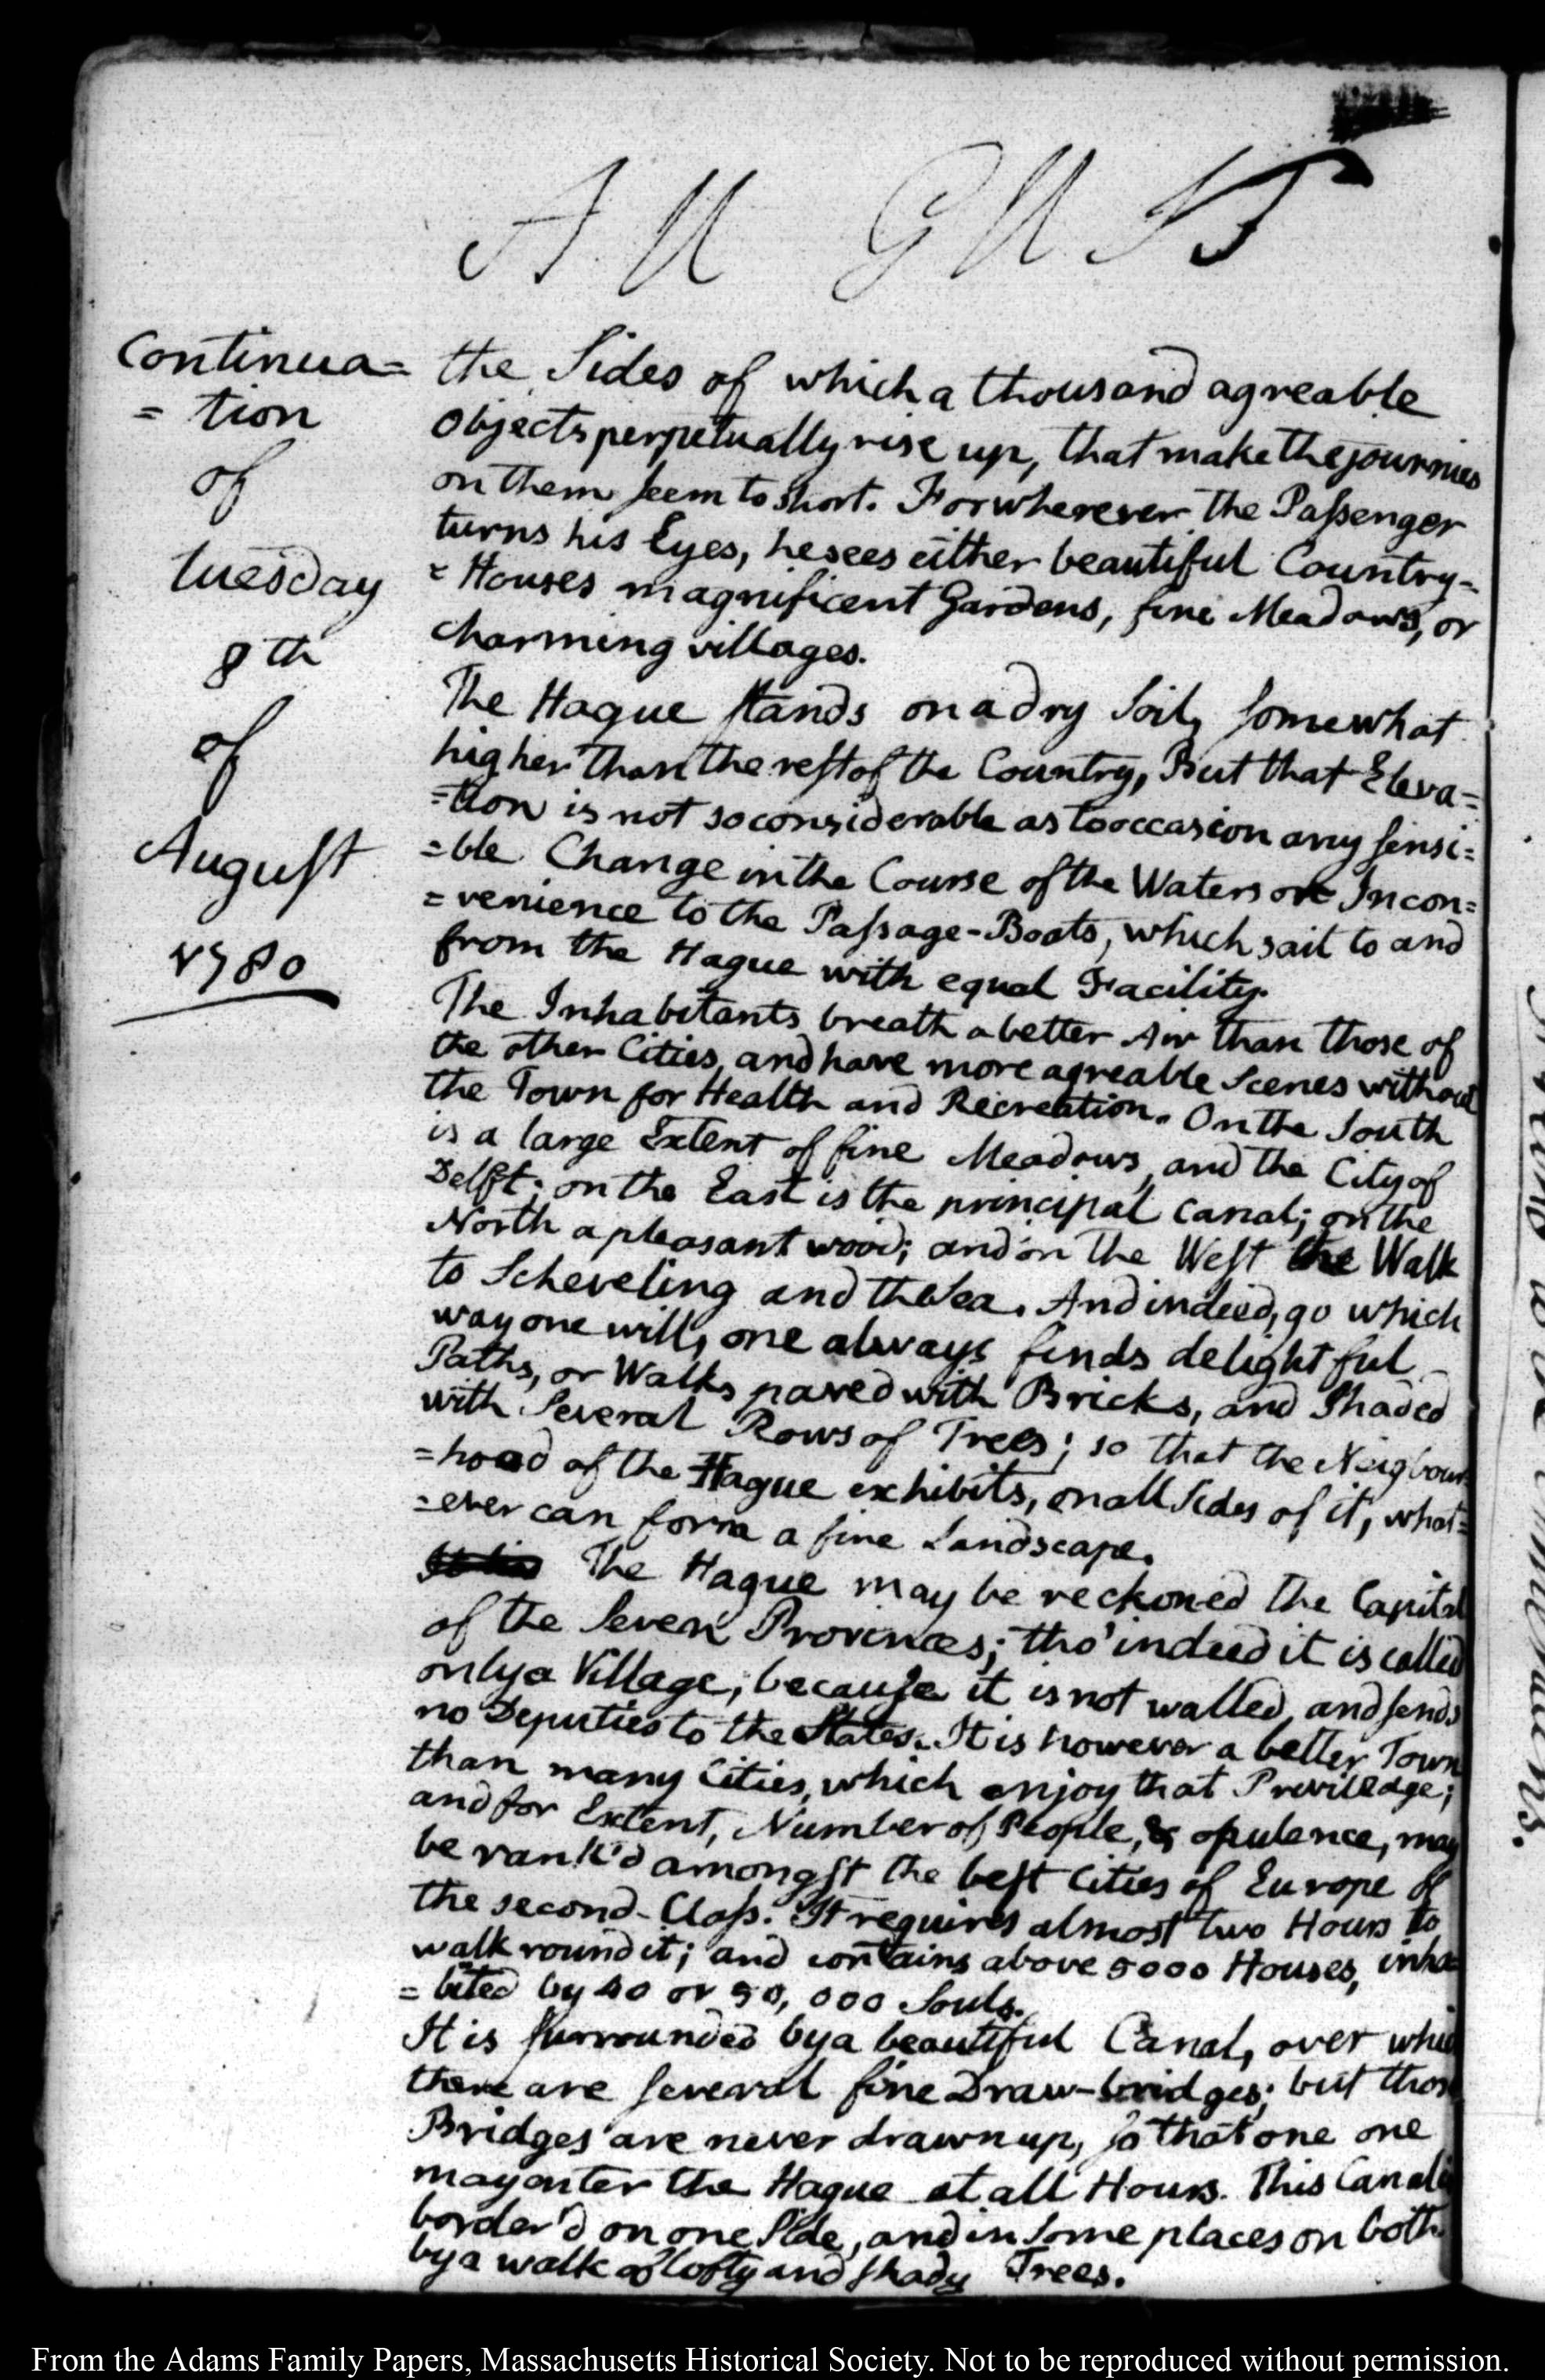 AUGUST
Continua=
=tion
of
tuesday
8th
of
August
1780
the Sides of which a thousand agreable
objects perpetually rise up, that make the journies
on them seem to short. For wherever the Passenger
turns his Eyes, he sees either beautiful Country-
=Houses magnificent Gardens, fine Meadows, or
charming villages.
The Hague stands on a dry Soil, somewhat
higher than the rest of the Country, But that Eleva=
=tion is not so considerable as to occasion any sensi=
=ble Change in the Course of the Waters or Incon=
=venience to the Passage-Boats, which sail to and
from the Hague with equal Facility.
The Inhabitants breath a better Air than those of
the other Cities, and have more agreable Scenes without
the Town for Health and Recreation. On the South
is a large Extent of fine Meadows, and the City of
Delft; on the East is the principal canal; on the
North a pleasant wood; and on the West the Walk
to Scheveling and the Sea. And indeed, go which
way one will, one always finds delightful
Paths, or Walks paved with Bricks, and Shaded
with Several Rows of Trees; so that the Neigbour
=hood of the Hague exhibits, on all Sides of it, what=
=ever can form a fine Landscape.
The Hague may be reckoned the Capital
of the Seven Provinces; tho' indeed it is called
only a Village, because it is not walled, and sends
no Deputies to the States. It is however a better Town
than many Cities, which enjoy that Priviledge;
and for Extent, Number of People, & opulence, may
be rank'd amongst the best Cities of Europe of
the second-Class. It requires almost two Hours to
walk round it; and contains above 5000 Houses, inha=
=bited by 40 or 50,000 Souls.
It is surrounded by a beautiful Canal, over whi
there are several fine Draw-bridges; but thos
Bridges are never drawn up, so that one one
may enter the Hague at all Hours. This Canal i
border'd on one Side, and in some places on both
by a walk of lofty and shady Trees.
From the Adams Family Papers, Massachusetts Historical Society. Not to be reproduced without permission.